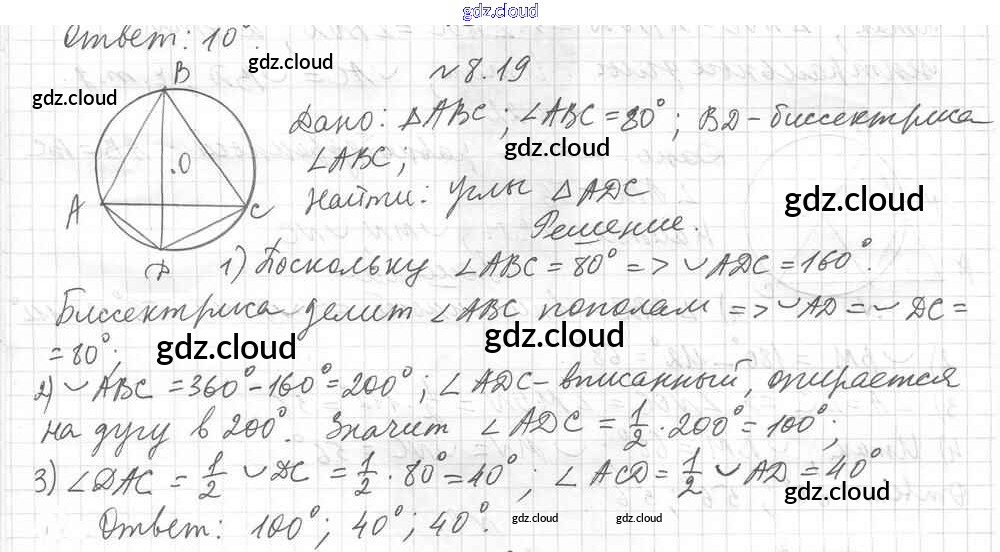 gdz.cloud
Ответ: 10°.
gdz.cloud
N 8.19
gdz.cloud
B
Дано: △ABC; ∠ABC = 80°; BD - биссектриса
∠ABC;
gdz.cloud
O
Найти: углы △ADC
gdz.cloud
A
C
Решение.
D
1) Поскольку ∠ABC = 80° => ◡ADC = 160°.
Биссектриса делит ∠ABC пополам => ◡AD = ◡DC =
= 80°;
gdz.cloud
gdz.cloud
2) ◡ABC = 360° - 160° = 200°; ∠ADC - вписанный, опирается
на дугу в 200°. Значит ∠ADC = 1/2 · 200° = 100°;
3) ∠DAC = 1/2 ◡DC = 1/2 · 80° = 40°; ∠ACD = 1/2 ◡AD = 40°
gdz.cloud
Ответ: 100°; 40°; 40°.
gdz.cloud
gdz.cloud